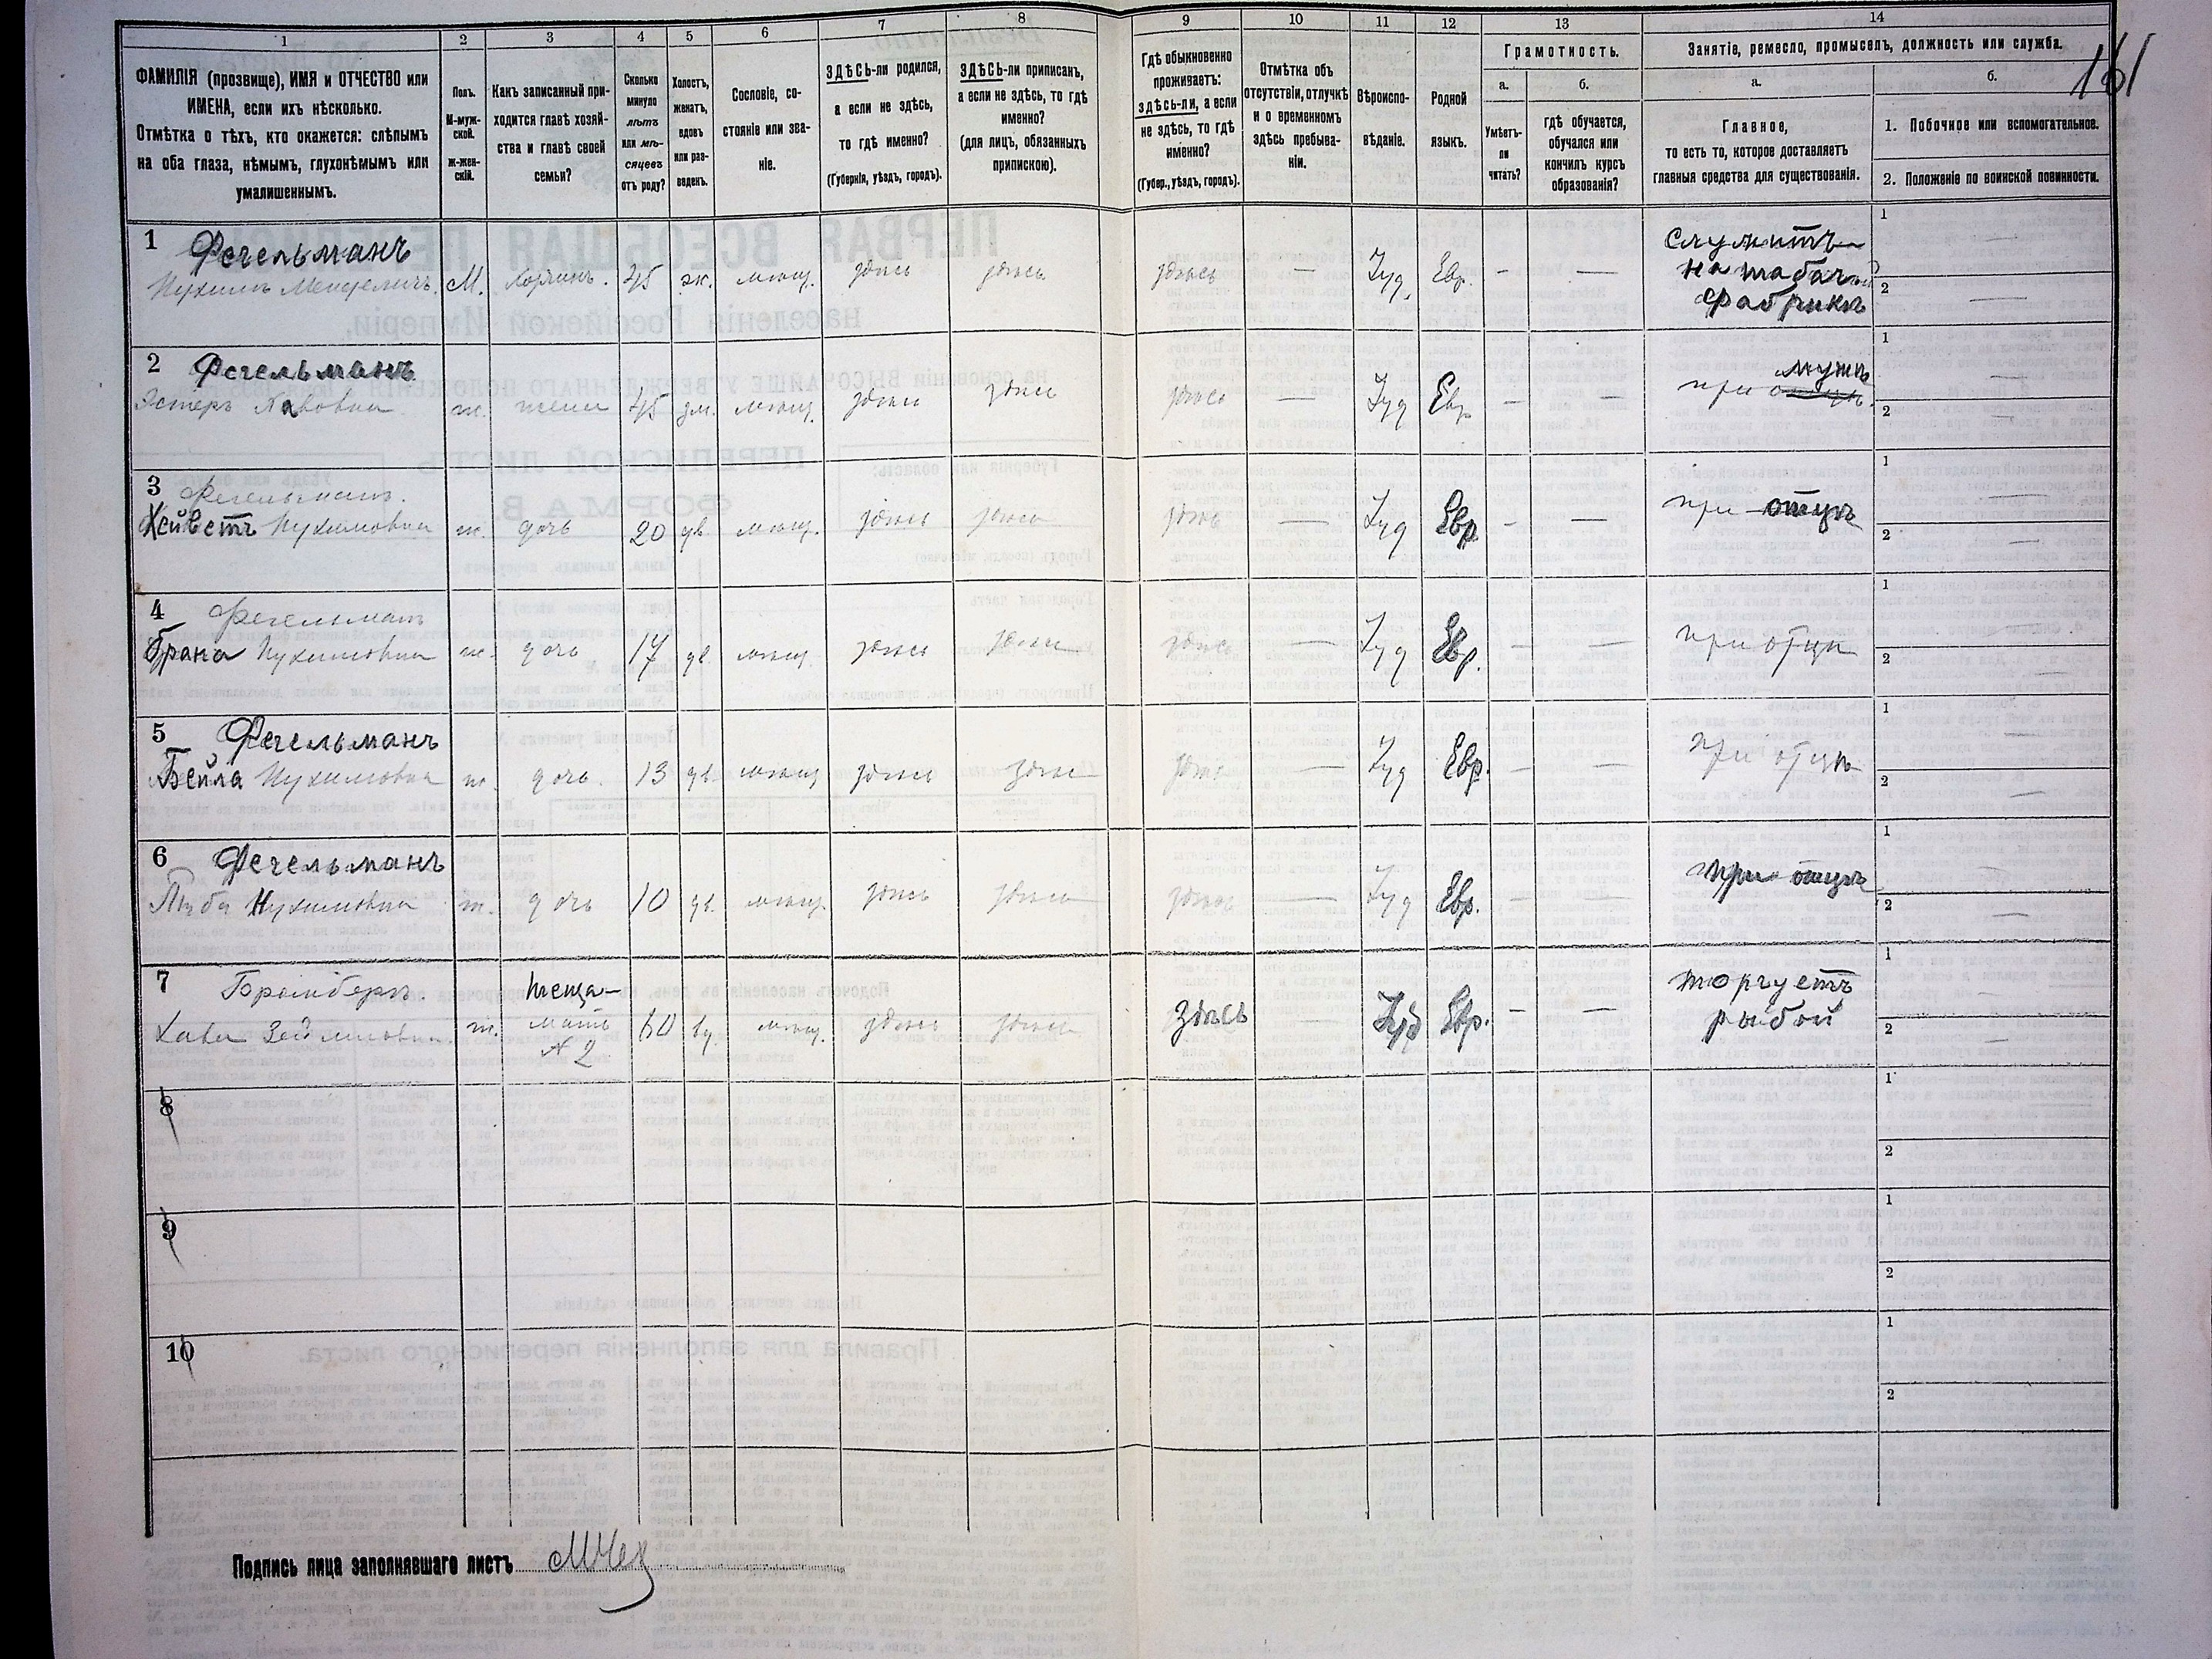 161
1 2 3 4 5 6 7 8 9 10 11 12 13 14
ФАМИЛІЯ (прозвище), ИМЯ и ОТЧЕСТВО или
ИМЕНА, если ихъ нѣсколько.
Отмѣтка о тѣхъ, кто окажется: слѣпымъ
на оба глаза, нѣмымъ, глухонѣмымъ или
умалишеннымъ.
Полъ.
М-муж-
ской.
Ж-жен-
скій.
Какъ записанный при-
ходится главѣ хозяй-
ства и главѣ своей
семьи?
Сколько
минуло
лѣтъ
или мѣ-
сяцевъ
отъ роду?
Холостъ,
женатъ,
вдовъ
или раз-
веденъ.
Сословіе, со-
стояніе или зва-
ніе.
ЗДѢСЬ-ли родился,
а если не здѣсь,
то гдѣ именно?
(Губернія, уѣздъ, городъ).
ЗДѢСЬ-ли приписанъ,
а если не здѣсь, то гдѣ
именно?
(для лицъ, обязанныхъ
припискою).
Гдѣ обыкновенно
проживаетъ:
здѣсь-ли, а если
не здѣсь, то гдѣ
именно?
(Губер., уѣздъ, городъ).
Отмѣтка объ
отсутствіи, отлучкѣ
и о временномъ
здѣсь пребыва-
ніи.
Вѣроиспо-
вѣданіе.
Родной
языкъ.
Грамотность.
а.
Умѣетъ-
ли
читать?
б.
гдѣ обучается,
обучался или
кончилъ курсъ
образованія?
Занятіе, ремесло, промыселъ, должность или служба.
а.
Главное,
то есть то, которое доставляетъ
главныя средства для существованія.
б.
1. Побочное или вспомогательное.
2. Положеніе по воинской повинности.
1 Фегельманъ
М. 45 ж. мѣщ. здѣсь здѣсь здѣсь — Іуд. Евр. - —
служитъ
на табачн
фабрикѣ
1
2
2 Фегельманъ
Эстеръ ж. жена 45 зм. мѣщ. здѣсь здѣсь здѣсь — Іуд Евр — —
при мужѣ
1
2
3 Фегельманъ.
Хейветъ Нухимовна ж. дочь 20 дв мѣщ. здѣсь здѣсь здѣсь — Іуд Евр - — при отцѣ
1
2
4 Фегельманъ
Брана Нухимовна ж. дочь 17 дв мѣщ здѣсь здѣсь здѣсь — Іуд Евр. — — при отцѣ
1
2
5 Фегельманъ
Бейла Нухимовна ж. дочь. 13 дв. мѣщ здѣсь здѣсь здѣсь — Іуд Евр. — — при отцѣ
1
2
6 Фегельманъ
Нухимовна ж. дочь 10 дв. мѣщ. здѣсь здѣсь здѣсь — Іуд Евр. — — при отцѣ
1
2
7
Хава ж. теща—
мать
№ 2
60 вд. мѣщ. здѣсь здѣсь здѣсь — Іуд Евр. - —
торгуетъ
рыбой
1
2
8
1
2
9
1
2
10
1
2
Подпись лица заполнявшаго листъ